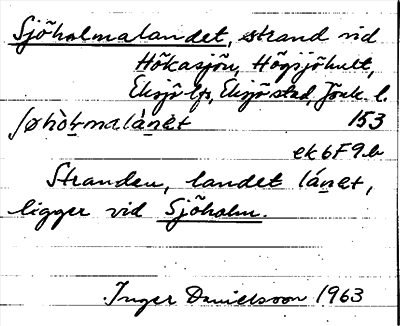 Sjöholmalandet, strand vid
Hökasjön, Högsjöhult,
Eksjö lfs, Eksjö stad, Jönk. l.
ʃøhòɫmalànət 153
ek 6F9b
Stranden, landet lánət,
ligger vid Sjöholm.
Inger Danielsson 1963